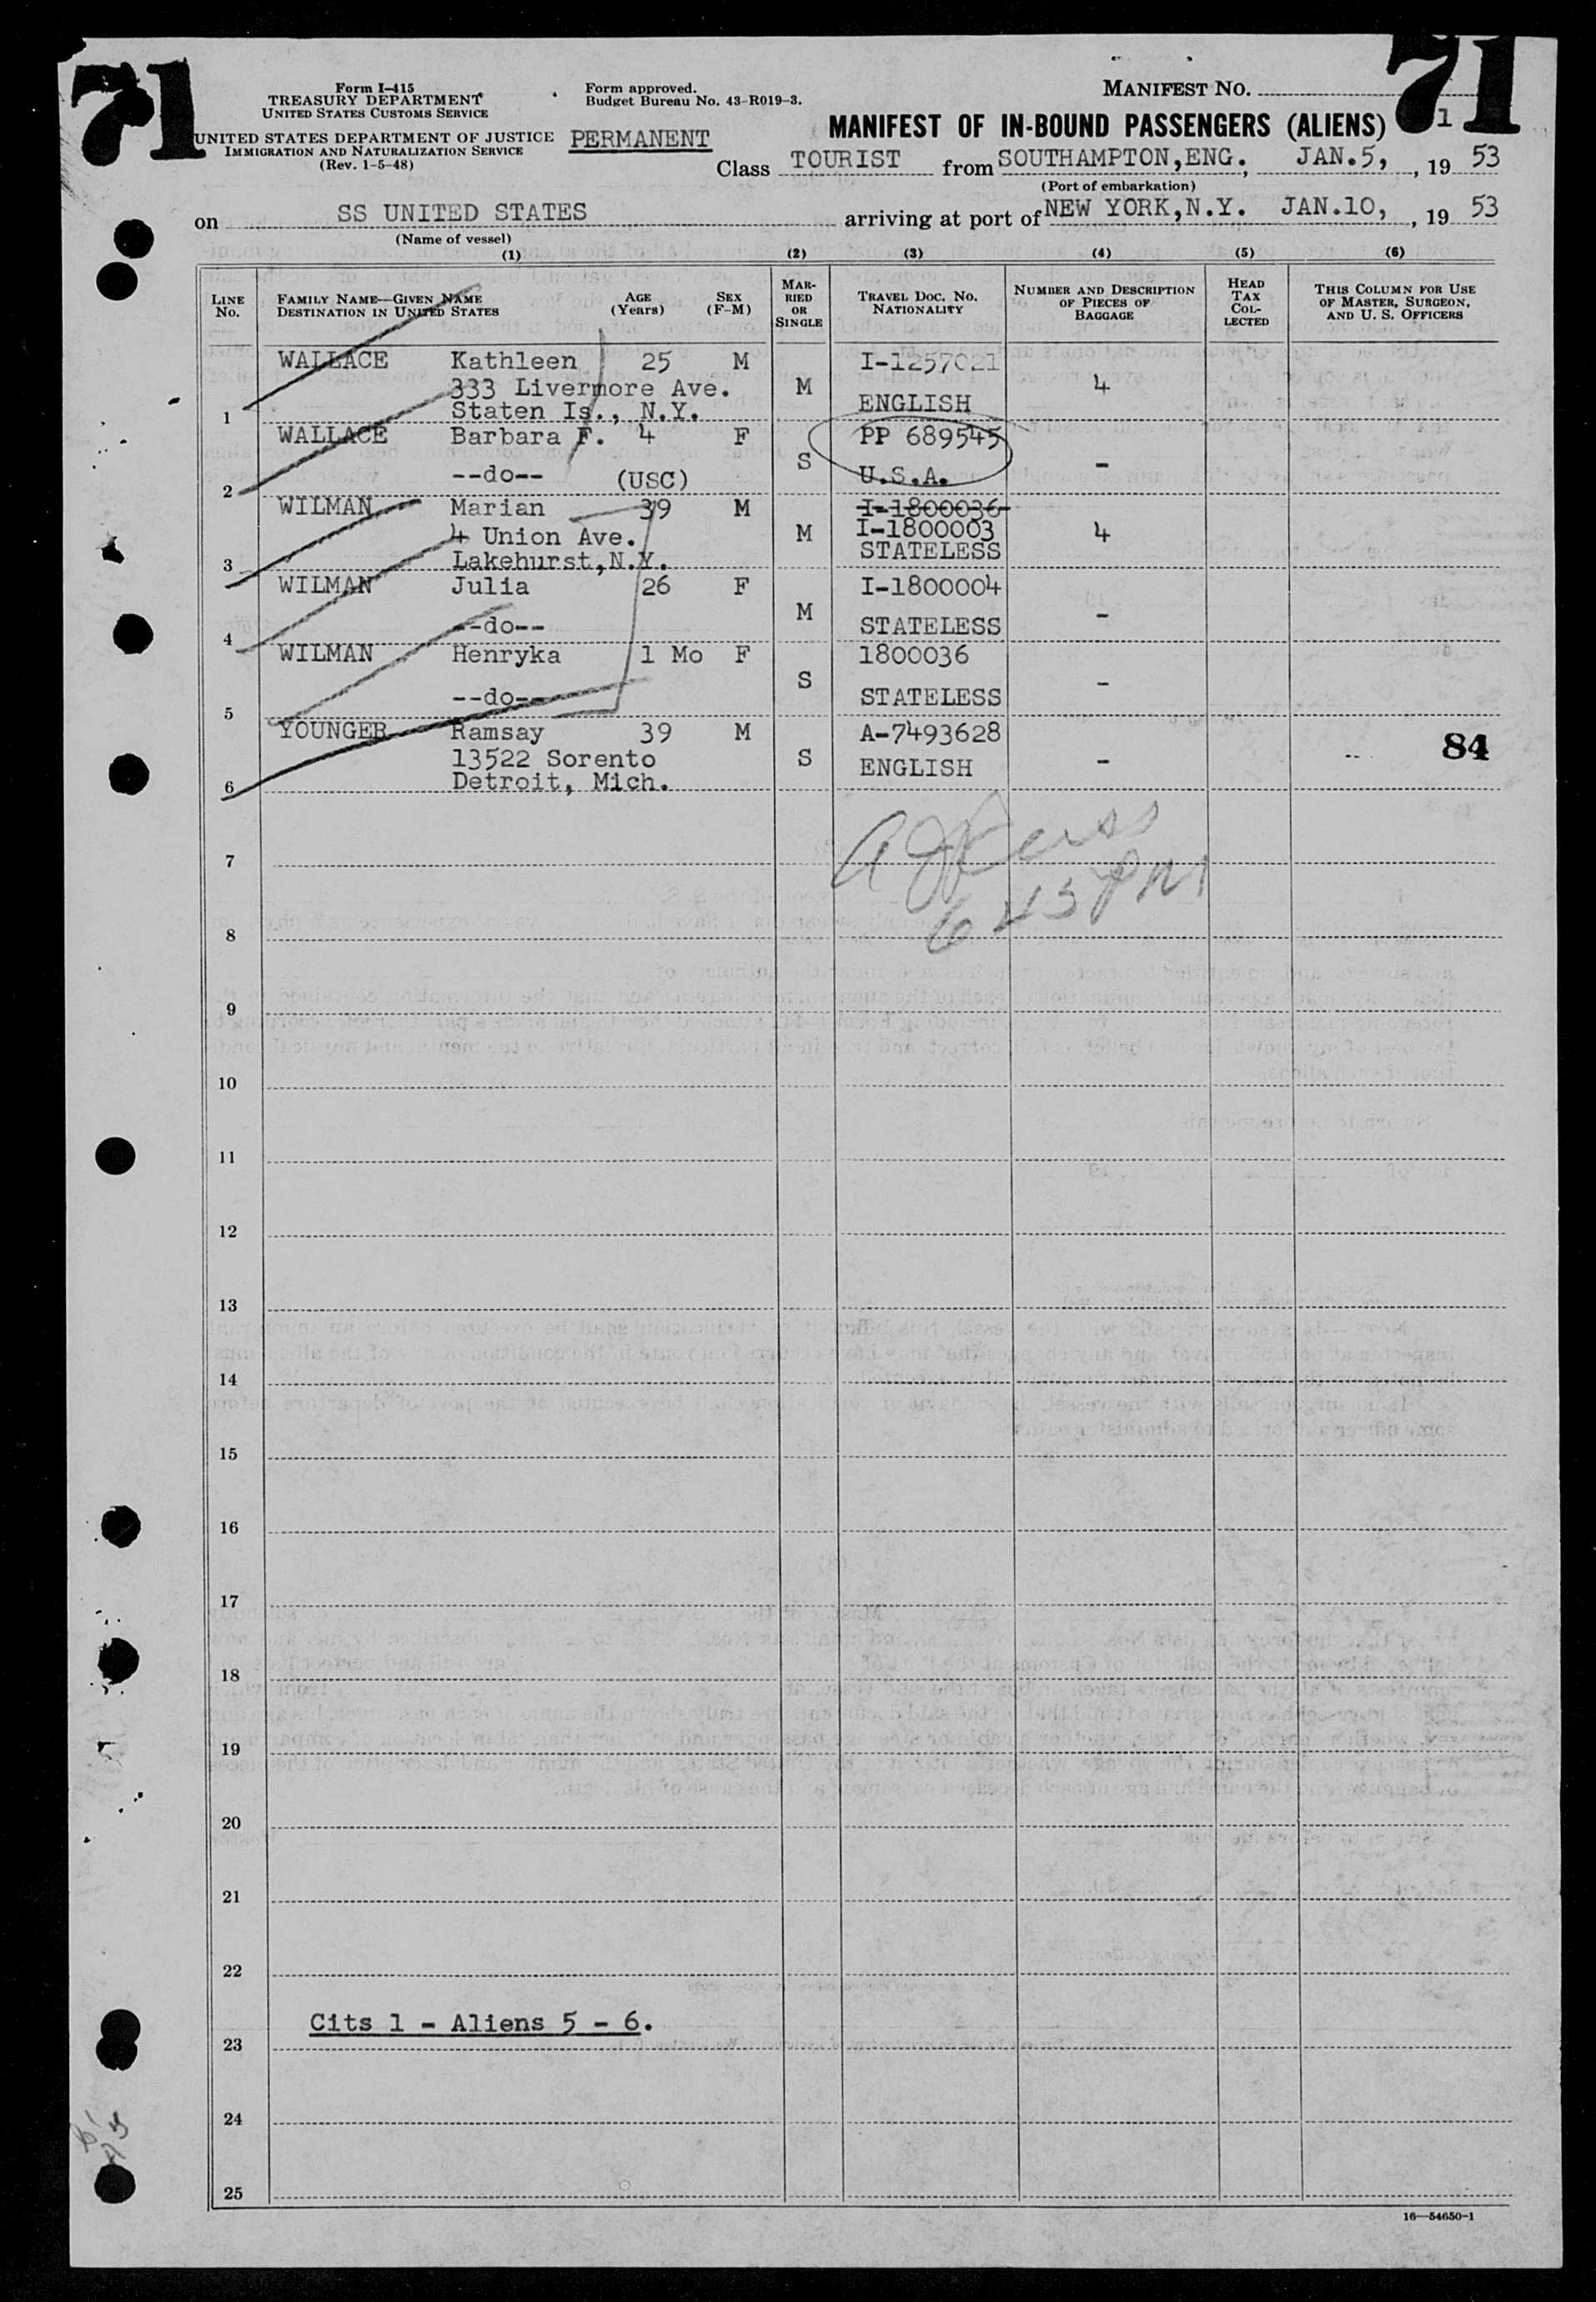 71
71
Form I-415
TREASURY DEPARTMENT
UNITED STATES CUSTOMS SERVICE
UNITED STATES DEPARTMENT OF JUSTICE
IMMIGRATION AND NATURALIZATION SERVICE
(Rev. 1-5-48)
Form approved.
Budget Bureau No. 43-R019-3.
PERMANENT
MANIFEST NO.
1
MANIFEST OF IN-BOUND PASSENGERS (ALIENS)
Class TOURIST from SOUTHAMPTON,ENG., JAN.5, , 19 53
(Port of embarkation)
on SS UNITED STATES arriving at port of NEW YORK,N.Y. JAN.10, , 19 53
(Name of vessel)
(1) (2) (3) (4) (5) (6)
LINE No. FAMILY NAME—GIVEN NAME DESTINATION IN UNITED STATES AGE (Years) SEX (F-M) MARRIED OR SINGLE TRAVEL DOC. NO. NATIONALITY NUMBER AND DESCRIPTION OF PIECES OF BAGGAGE HEAD TAX COLLECTED THIS COLUMN FOR USE OF MASTER, SURGEON, AND U. S. OFFICERS
WALLACE Kathleen 25 M I-1257021
333 Livermore Ave. M 4
1 Staten Is., N.Y. ENGLISH
WALLACE Barbara F. 4 F PP 689545
S -
2 --do-- (USC) U.S.A.
WILMAN Marian 39 M I-1800036
4 Union Ave. M I-1800003 4
3 Lakehurst,N.Y. STATELESS
WILMAN Julia 26 F I-1800004
M -
4 --do-- STATELESS
WILMAN Henryka 1 Mo F 1800036
S -
5 --do-- STATELESS
YOUNGER Ramsay 39 M A-7493628
13522 Sorento S ENGLISH - 84
6 Detroit, Mich.
7
6 45 PM
8
9
10
11
12
13
14
15
16
17
18
19
20
21
22
Cits 1 - Aliens 5 - 6.
23
24
25
16—54650-1